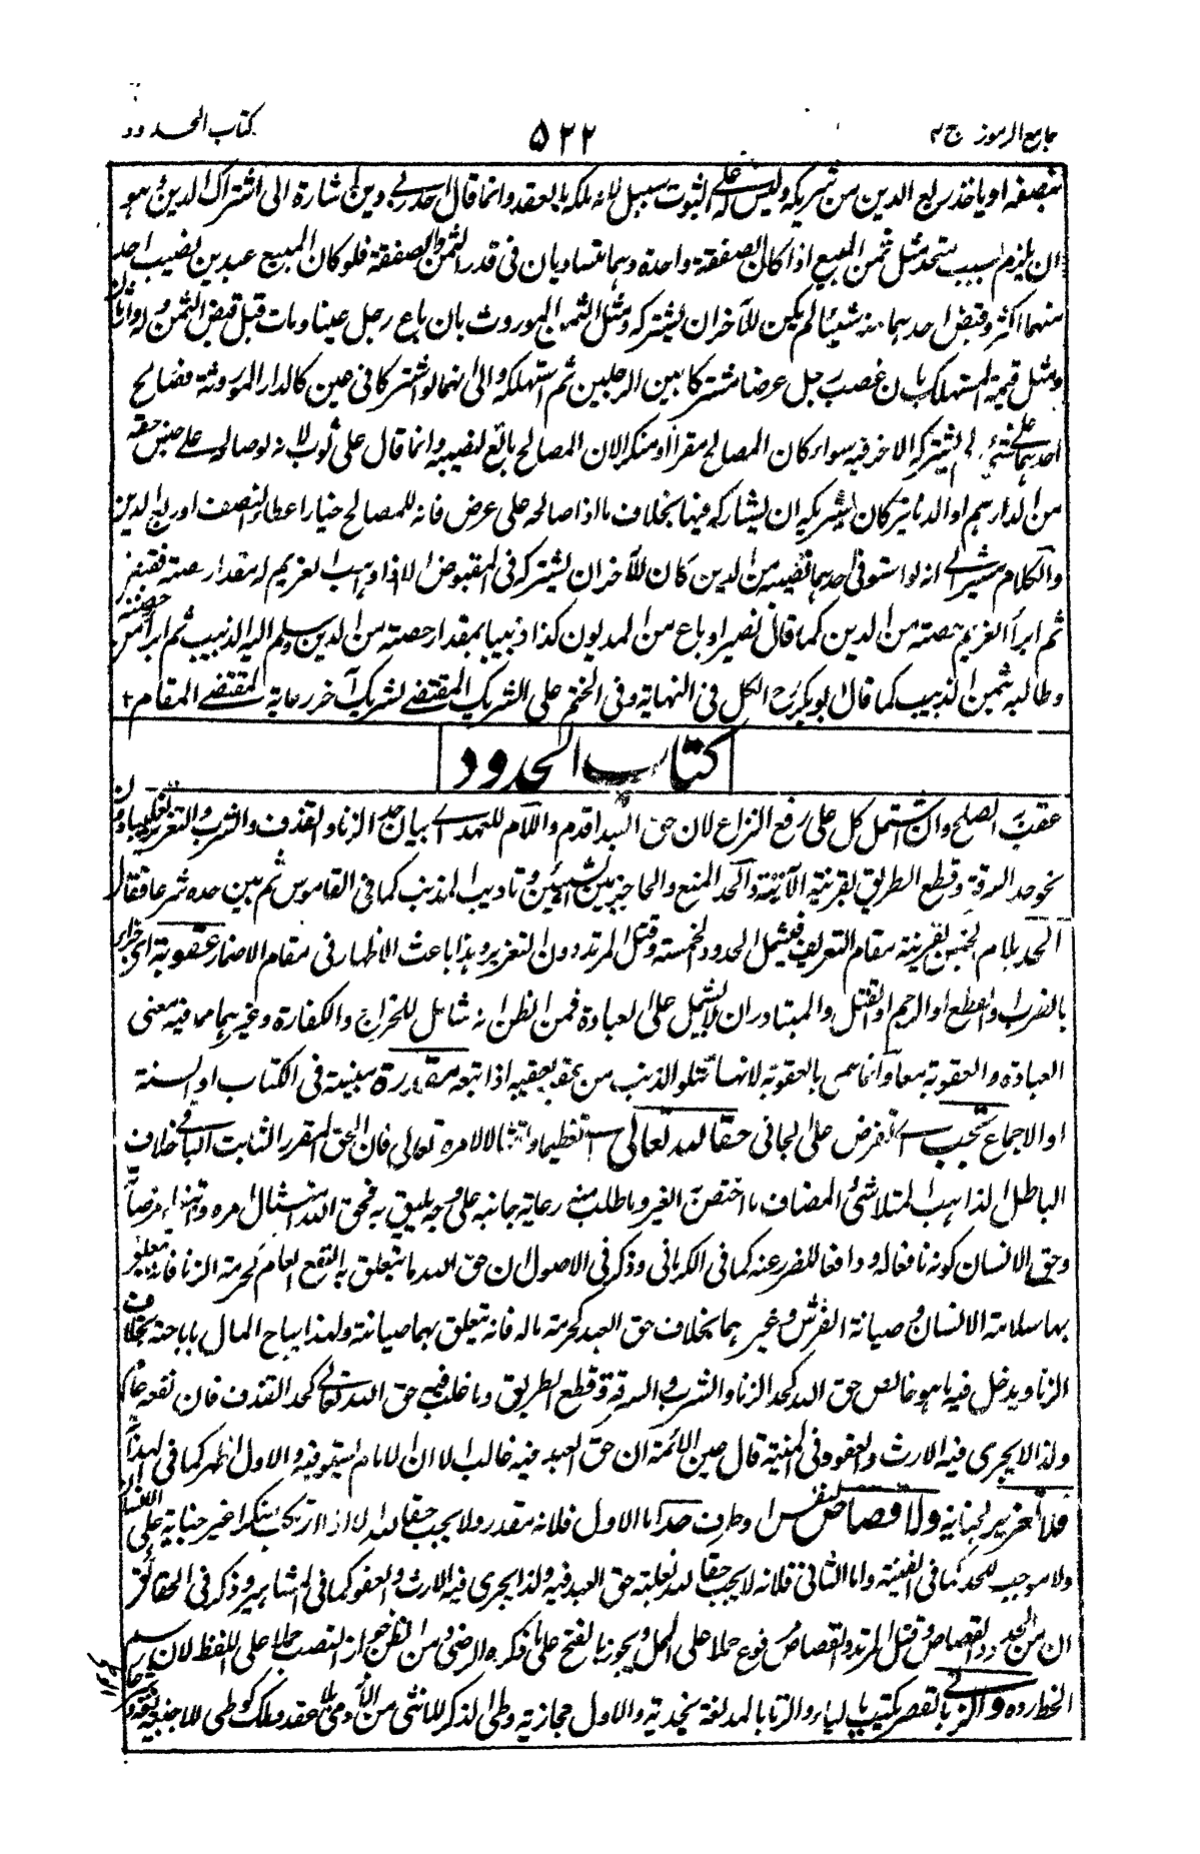 جامع الرموز ج ٣
٥٢٢
كتاب الحدود
بنصفه او ياخذ ربع الدين من شريكه وليس له على الثوب سبيل لانه ملكه بالعقد وانما قال احد ربي دين اشارة الى اشتراك الدين هو
ان يلزم بسبب متحد مثل ثمن المبيع اذا كان الصفقة واحدة وهما متساويان فى قدر الثمن والصفقة فلو كان المبيع عبدين نصيب احد
منهما اكثر وقبض احدهما منه شيئا لم يكن للآخر ان يشتركه ومثل الثمن الموروث بان باع رجل عينا ومات قبل قبض الثمن وله وارثان
ومثل قيمة المستهلك بان غصب رجل عرضا مشتركا بين الرجلين ثم استهلكه والى انهما لو اشتركا فى عين كالدار الموروثة فصالح
احدهما على شئ لم يشتركه الاخر فيه سواء كان المصالح مقرا او منكرا لان المصالح بائع لنصيبه وانما قال على ثوب لانه لو صالحه على جنس حقه
من الدراهم او الدنانير كان لشريكه ان يشاركه فيها بخلاف ما اذا صالحه على عرض فانه للمصالح خيار اعطاء النصف او ربع الدين
والكلام مشير الى انه لو استوفى احدهما نصيبه من الدين كان للآخر ان يشتركه فى المقبوض الا اذا وهب الغريم له مقدار حصته فقبض
ثم ابرأ الغريم حصته من الدين كما قال نصير او باع من المديون كذا زبيبا بمقدار حصته من الدين وسلم اليه الزبيب ثم ابرأ من حصته
وطالبه بثمن الزبيب كما قال ابو بكر رح الكل فى النهاية وفى الختم على الشريك المقتضى لشريك آخر رعاية لمقتضى المقام +
كتاب الحدود
عقب الصلح وان اشتمل كل على رفع النزاع لان حق العبد اقدم واللام للعهد اى بيان حد الزنا والقذف والشرب والتعزير تغليبا دون
نحو حد السرقة وقطع الطريق بقرينة الآتية والحد المنع والحاجز بين الشيئين وتاديب المذنب كما فى القاموس ثم بين حده شرعا فقال
الحد بلام الجنس بقرينة مقام التعريف فيشمل الحدود الخمسة وقتل المرتد دون التعزير وهذا باعث الاظهار فى مقام الاضمار عقوبة اى جزاء
بالضرب او القطع او الرجم او القتل والمتبادر ان لا يشمل على العبادة فمن الظن انه شامل للخراج والكفارة وغيرهما مما فيه معنى
العبادة والعقوبة معا وانما سمى بالعقوبة لانها تتلو الذنب من عقب يعقبه اذا تبعه مقدرة مبينة فى الكتاب او السنة
او الاجماع تجب اى تفرض على الجانى حقا لله تعالى اى تعظيما وامتثالا لامره تعالى فان الحق المقرر الثابت الباقى خلاف
الباطل الذاهب المتلاشى والمضاف ما اختص الغير وما طلب منه رعاية جانبه على وجه يليق به فحق الله امتثال امره وابتغاء مرضاته
وحق الانسان كونه نافعا له و دافعا للضرر عنه كما فى الكرمانى وذكر فى الاصول ان حق الله ما يتعلق به النفع العام كحرمة الزنا فانه يتعلق
بها سلامة الانسان وصيانة الفرش وغيرهما بخلاف حق العبد كحرمة ماله فانه يتعلق بهما صيانته ولهذا يباح المال باباحته بخلاف
الزنا ويدخل فيه ما هو خالص حق الله كحد الزنا والشرب والسرقة وقطع الطريق وما غلب فيه حق الله تعالى كحد القذف فان نفعه عام
ولذا لا يجرى فيه الارث والعفو وفى المنية قال عين الائمة ان حق العبد فيه غالب الا ان الامام يستوفيه والاول اظهر كما فى الهداية
فلا تعزير لجنايه ولا قصاص لنفس او طرف حد اما الاول فلانه مقدر ولا يجب حقا لله الا اذا ارتكب منكرا غير جناية على الانسان
ولا موجب للحد كما فى الغنية واما الثانى فلانه لا يجب حقا لله لغلبة حق العبد فيه ولذا يجرى فيه الارث والعفو كما فى المشاهير وذكر فى الحقائق
ان من الحدود القصاص وقتل المرتد والقصاص مرفوع حملا على المحل ويجوز بالفتح على ما ذكره الرضى ومن الظن جواز النصب حملا على اللفظ لان رسم
الخط رده والزنى بالقصر يكتب بالياء والزنا بالمد لغة نجدية والاول حجازية وطى الذكر للانثى من الآدمى بلا عقد وملك كوطى للاجنبية